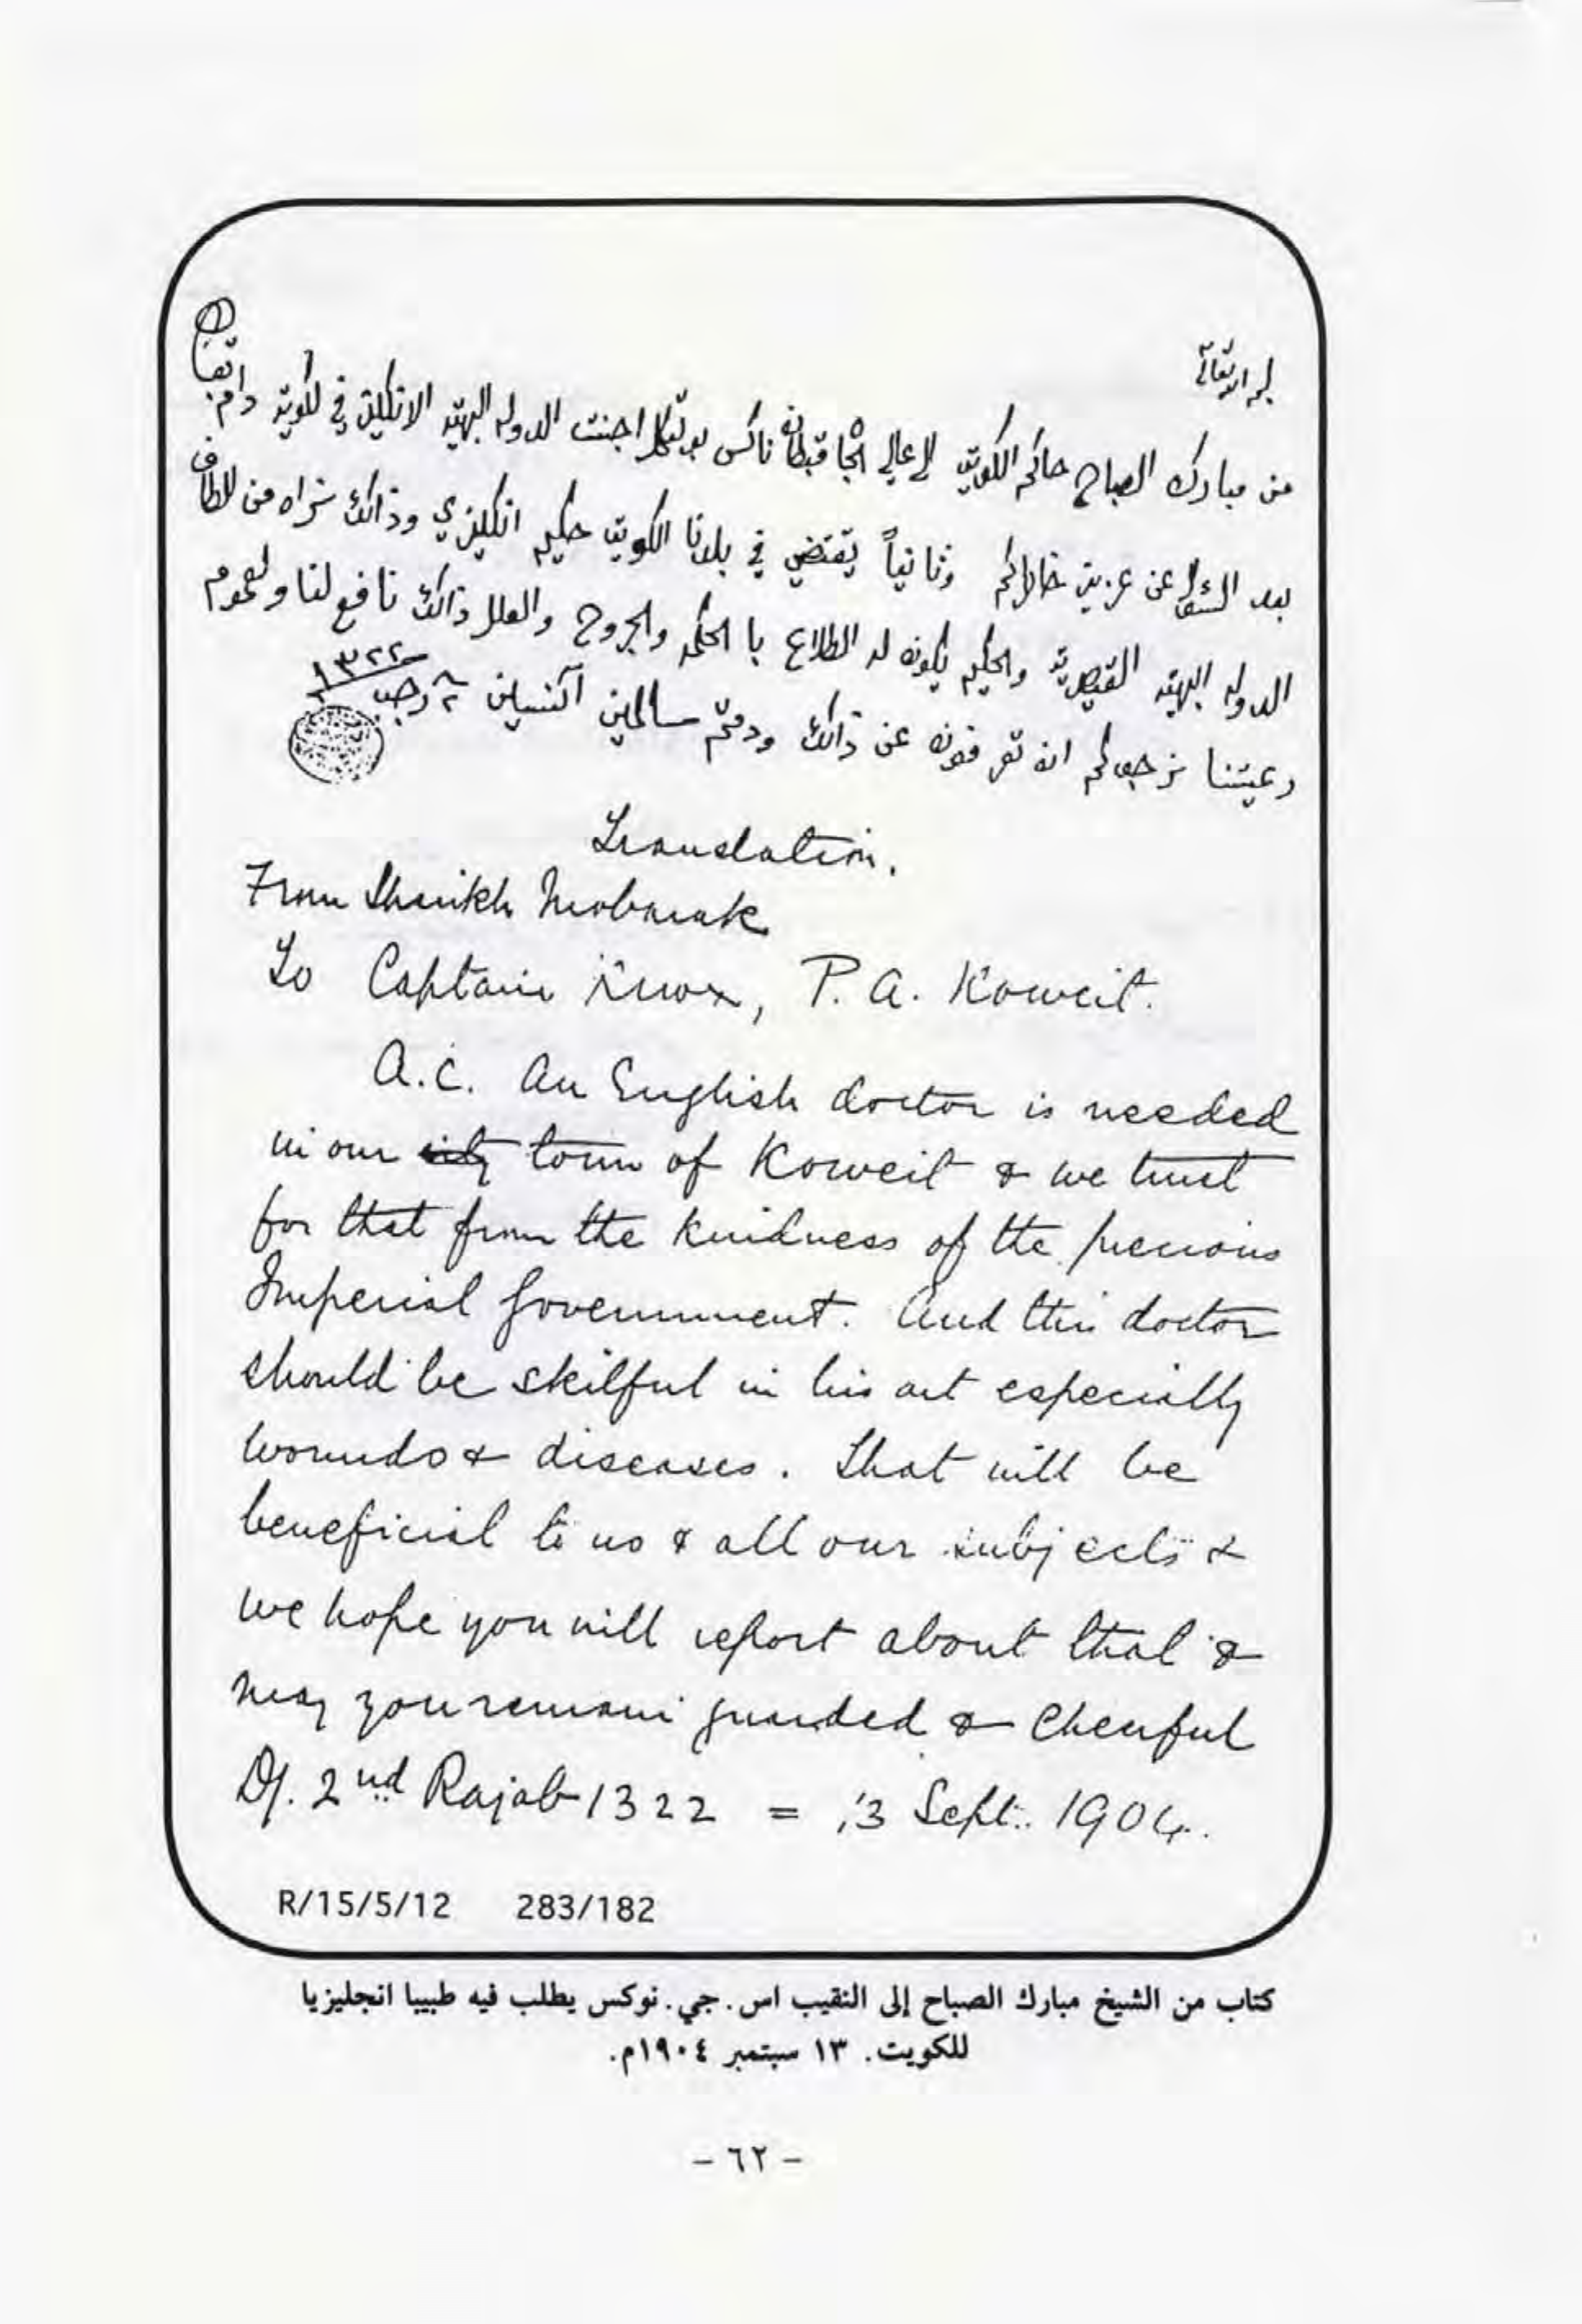 بسم الله تعالى
من مبارك الصباح حاكم الكويت الى عالي الجاه قبطان ناكس بولتكل اجنت الدوله البهيه الانكليز في الكويت دام بقاه
بعد السؤال عن عزيز خاطركم وثانياً يقتضي في بلدنا الكويت حكيم انكليزي وذالك نراه من الطاف
الدوله البهيه القيصريه والحكيم يكون له اطلاع با الحكمه والجروح والعلل ذالك نافع لنا ولعموم
رعيتنا نرجوكم ان تعرفون عن ذالك ودمتم سالمين ٢ رجب ١٣٢٢
Translation.
From Shaikh Mobarak
To Captain Knox, P. A. Koweit.
A.C. An English doctor is needed
in our city town of Koweit & we trust
for that from the kindness of the precious
Imperial Government. And this doctor
should be skilful in his art especially
wounds & diseases. That will be
beneficial to us & all our subjects &
we hope you will report about that &
may you remain guarded & cheerful
D/. 2nd Rajab 1322 = 13 Sept. 1904.
R/15/5/12 283/182
كتاب من الشيخ مبارك الصباح إلى النقيب اس. جي. نوكس يطلب فيه طبيبا انجليزيا
للكويت. ١٣ سبتمبر ١٩٠٤م.
- ٦٢ -